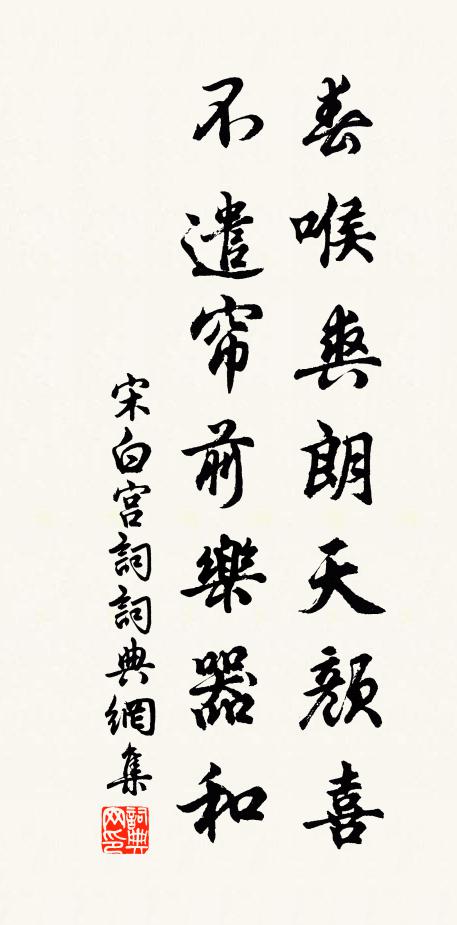 春喉爽朗天顏喜
不遣帘前樂器和
宋白宮詞詞典網集
詞典网印